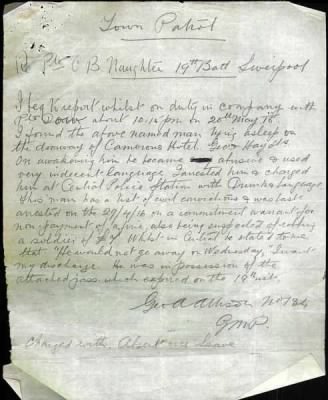 Town Patrol
Pte C B Naughter 19th Batt Liverpool
I beg to report whilst on duty in company with
Pte about 10.15 pm on 20th May 16
I found the above named man lying asleep on
the doorway of Hotel. Geo & Hay Sts
On awakening him he became abusive & used
very indecent language. I arrested him & charged
him at Central Police Station with Drunk & Language
This man has a list of civil convictions & was last
arrested on the 29/4/16 on a commitment warrant for
non payment of a fine, also being suspected of robbing
a soldier of £7. Whilst in Central he stated to me
that "He would not go away on Wednesday, I want
my discharge. He was in possession of the
attached pass which expired on the 19th inst.
Geo A No 184
G.M.P.
Charged with Absent without Leave